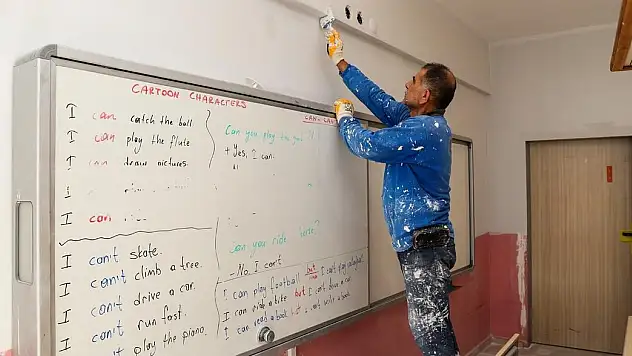 CARTOON CHARACTERS
I can catch the ball
I can play the flute
I can draw pictures.
I
I can
I can't skate.
I can't climb a tree.
I can't drive a car.
I can't run fast.
I can't play the piano.
CAN - CAN
Can you play the
+ Yes, I can.
Can you ride horse?
- No. I can't
I can play football but I can't play
I can ride a bike but I can't drive a car.
I can read a book but I can't write a book.